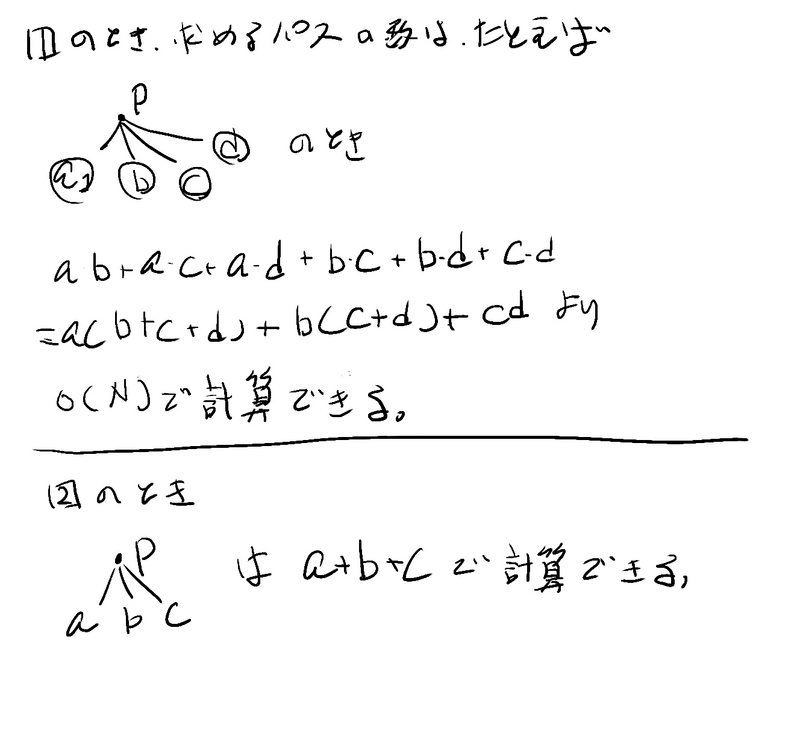 [1]のとき、求めるパスの数は、たとえば
P
a b c d のとき
ab+a・c+a・d+b・c+b・d+c・d
=a(b+c+d)+b(c+d)+cd より
O(N)で計算できる。
[2]のとき
P
a b c は a+b+cで計算できる,